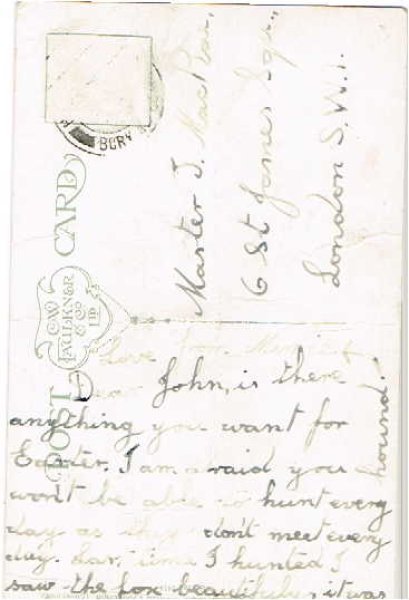 POST CARD
C.W.
FAULKNER
& CO
LTD
Master J. MacRae,
6 St James Sqr.,
London S.W.1.
Love from Mummie &
Dear John, is there
anything you want for
Easter. I am afraid you
won't be able to hunt every
day as they don't meet every
day. Last time I hunted I
saw the fox beautifully, it was
hound!